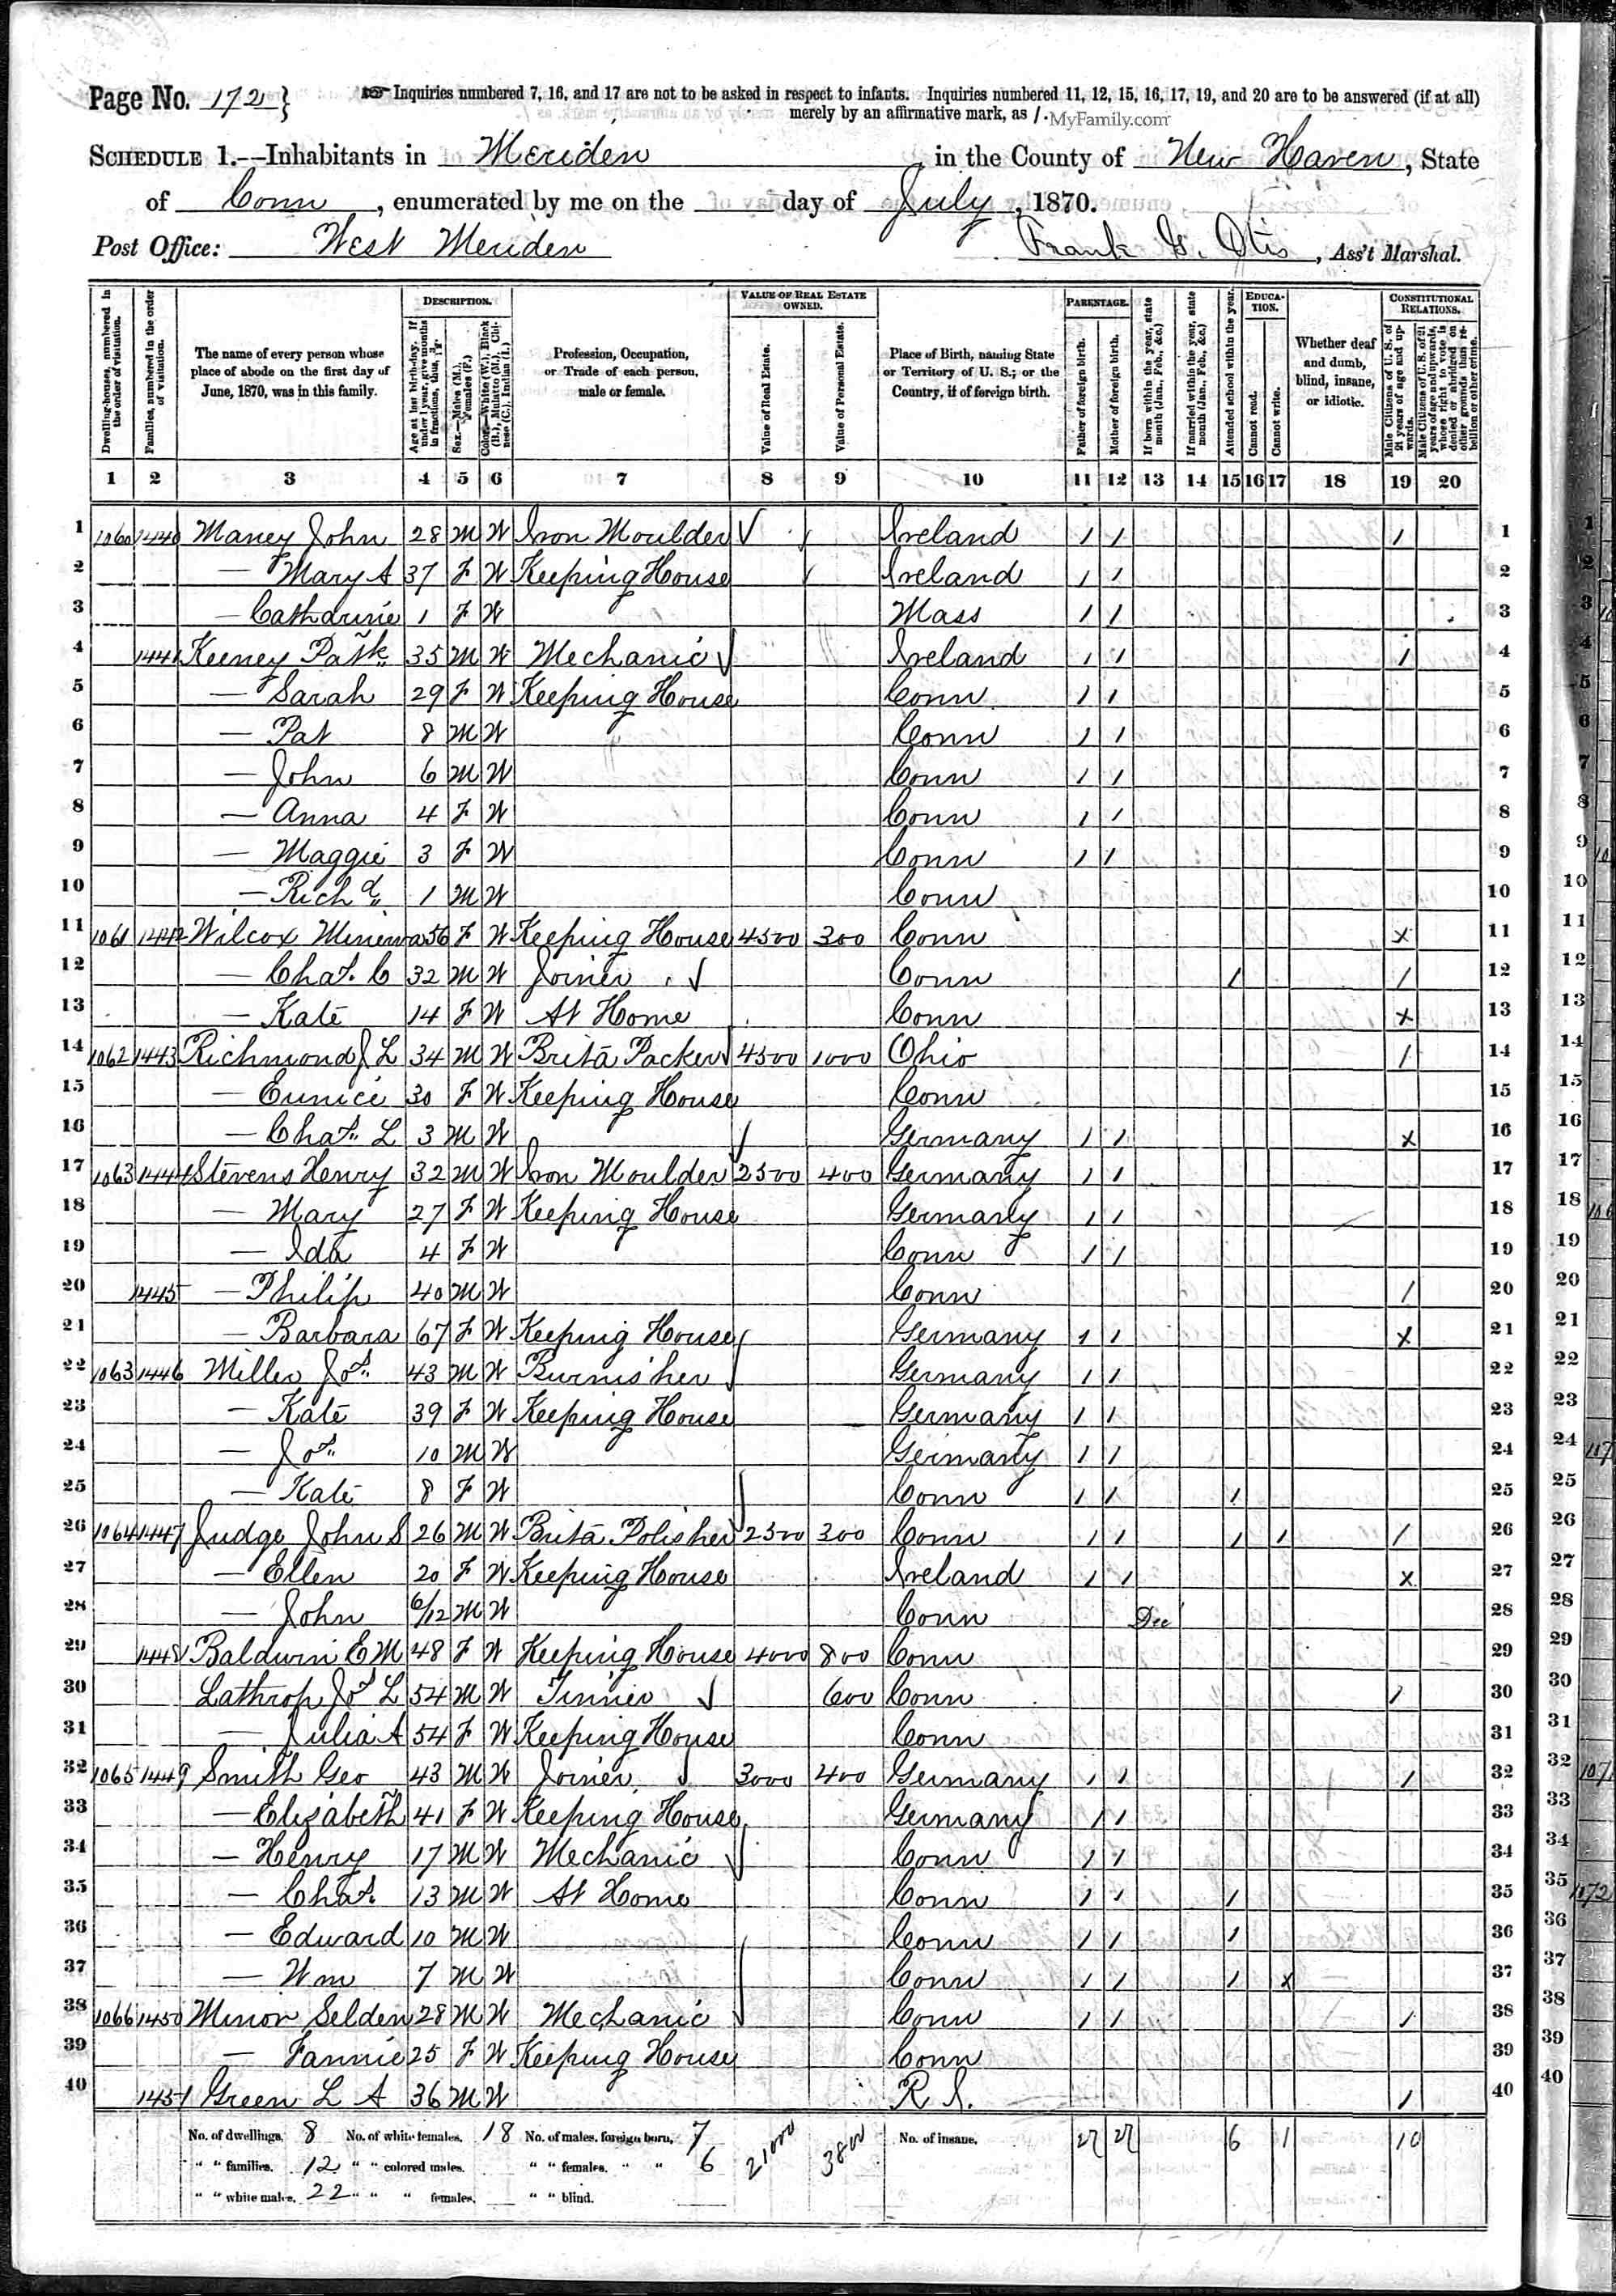 Page No. 172 } Inquiries numbered 7, 16, and 17 are not to be asked in respect to infants. Inquiries numbered 11, 12, 15, 16, 17, 19, and 20 are to be answered (if at all)
merely by an affirmative mark, as /. MyFamily.com
SCHEDULE 1.—Inhabitants in Meriden, in the County of New Haven, State
of Conn, enumerated by me on the day of July, 1870.
Post Office: West Meriden Frank G. Otis, Ass't Marshal.
Dwelling-houses, numbered in the order of visitation.
Families, numbered in the order of visitation.
The name of every person whose place of abode on the first day of June, 1870, was in this family.
DESCRIPTION.
Age at last birth-day. If under 1 year, give months in fractions, thus, 3/12.
Sex.—Males (M.), Females (F.)
Color.—White (W.), Black (B.), Mulatto (M.), Chinese (C.), Indian (I.)
Profession, Occupation, or Trade of each person, male or female.
VALUE OF REAL ESTATE OWNED.
Value of Real Estate.
Value of Personal Estate.
Place of Birth, naming State or Territory of U. S.; or the Country, if of foreign birth.
PARENTAGE.
Father of foreign birth.
Mother of foreign birth.
If born within the year, state month (Jan., Feb., &c.)
If married within the year, state month (Jan., Feb., &c.)
Attended school within the year.
EDUCATION.
Cannot read.
Cannot write.
Whether deaf and dumb, blind, insane, or idiotic.
CONSTITUTIONAL RELATIONS.
Male Citizens of U. S. of 21 years of age and upwards.
Male Citizens of U. S. of 21 years of age and upwards, whose right to vote is denied or abridged on other grounds than rebellion or other crime.
1 2 3 4 5 6 7 8 9 10 11 12 13 14 15 16 17 18 19 20
1 1060 1440 Maney John 28 M W Iron Moulder Ireland / / / 1
2 — Mary A 37 F W Keeping House Ireland / / 2
3 — Catharine 1 F W Mass / / 3
4 1441 Keeney Patk 35 M W Mechanic Ireland / / / 4
5 — Sarah 29 F W Keeping House Conn / / 5
6 — Pat 8 M W Conn / / 6
7 — John 6 M W Conn / / 7
8 — Anna 4 F W Conn / / 8
9 — Maggie 3 F W Conn / / 9
10 — Richd 1 M W Conn 10
11 1061 1442 Wilcox Minerva 56 F W Keeping House 4500 300 Conn x 11
12 — Chas. C 32 M W Joiner Conn / / 12
13 — Kate 14 F W At Home Conn x 13
14 1062 1443 Richmond J L 34 M W Brita Packer 4500 1000 Ohio / 14
15 — Eunice 30 F W Keeping House Conn 15
16 — Chas. L 3 M W Germany / / x 16
17 1063 1444 Stevens Henry 32 M W Iron Moulder 2500 400 Germany / / 17
18 — Mary 27 F W Keeping House Germany / / 18
19 — Ida 4 F W Conn / / 19
20 1445 — Philip 40 M W Conn / 20
21 — Barbara 67 F W Keeping House Germany / / x 21
22 1063 1446 Miller Jos. 43 M W Burnisher Germany / / 22
23 — Kate 39 F W Keeping House Germany / / 23
24 — Jos. 10 M W Germany / / 24
25 — Kate 8 F W Conn / / / 25
26 1064 1447 Judge John S 26 M W Brita Polisher 2500 300 Conn / / / / / 26
27 — Ellen 20 F W Keeping House Ireland / / x 27
28 — John 6/12 M W Conn Dec 28
29 1448 Baldwin E M 48 F W Keeping House 4000 800 Conn 29
30 Lathrop Jos L 54 M W Tinner 600 Conn / 30
31 — Julia A 54 F W Keeping House Conn 31
32 1065 1449 Smith Geo 43 M W Joiner 3000 400 Germany / / / 32
33 — Elizabeth 41 F W Keeping House Germany / / 33
34 — Henry 17 M W Mechanic Conn / / 34
35 — Chas. 13 M W At Home Conn / / / 35
36 — Edward 10 M W Conn / / / 36
37 — Wm 7 M W Conn / / / x 37
38 1066 1450 Minor Selden 28 M W Mechanic Conn / / / 38
39 — Fannie 25 F W Keeping House Conn 39
40 1451 Green L A 36 M W R I. / 40
No. of dwellings, 8 No. of white females, 18 No. of males, foreign born, 7 21000 3800 No. of insane, 27 27 6 1 10
" " families, 12 " " colored males, " " females, " " 6
" " white males, 22 " " " females, " " blind.